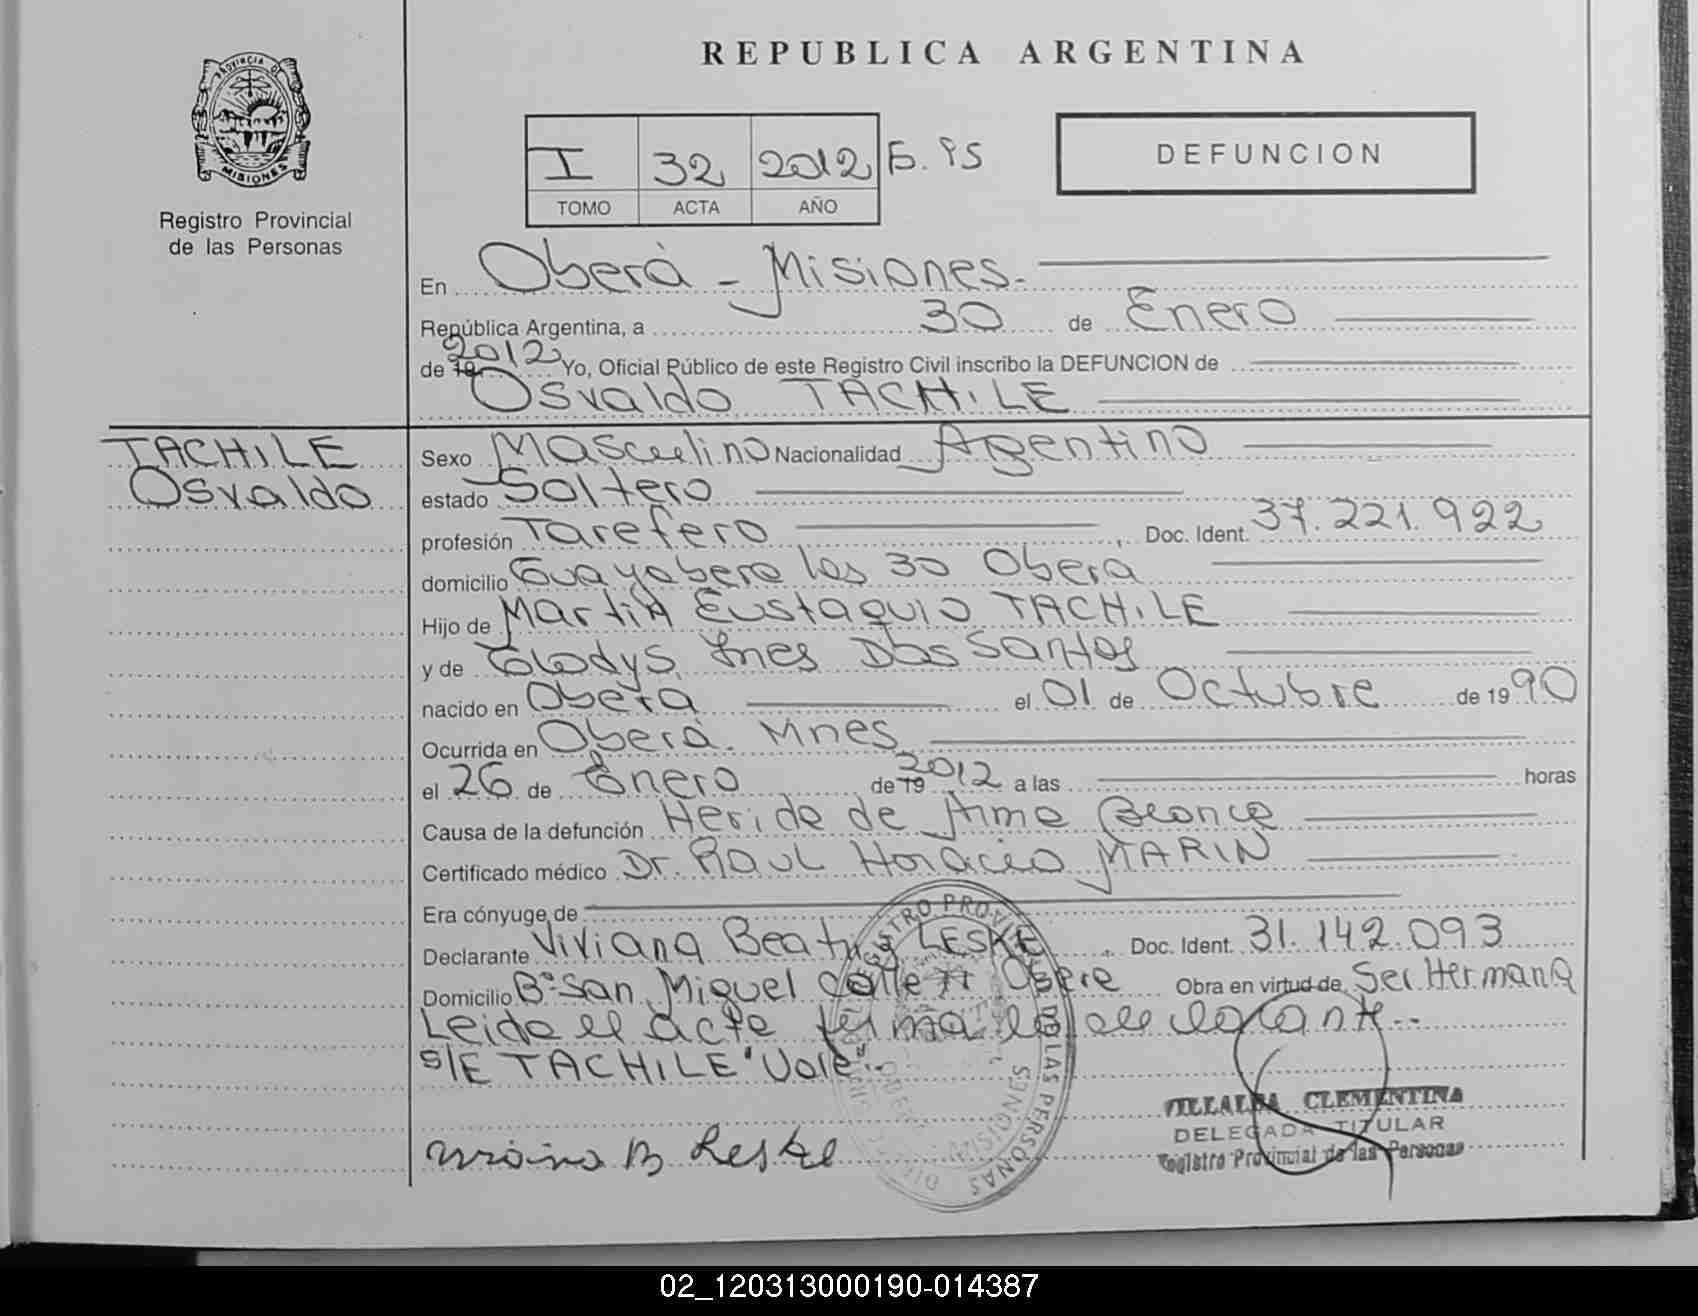 REPUBLICA ARGENTINA
PROVINCIA DE
MISIONES
Registro Provincial
de las Personas
I 32 2012
TOMO ACTA AÑO
DEFUNCION
En Oberá - Misiones.
República Argentina, a 30 de Enero
de 19 2012 Yo, Oficial Público de este Registro Civil inscribo la DEFUNCION de
Osvaldo TACHILE
TACHILE
Osvaldo
Sexo Masculino Nacionalidad Argentino
estado Soltero
profesión Tarefero, Doc. Ident. 37.221.922
domicilio Guayabera los 30 Oberá
Hijo de Martín Eustaquio TACHILE
y de Gladys Ines Dos Santos
nacido en Oberá el 01 de Octubre de 1990
Ocurrida en Oberá. Mnes
el 26 de Enero de 19 2012 a las horas
Causa de la defunción Herida de Arma Blanca
Certificado médico Dr. Raul Horacio MARIN
Era cónyuge de
Declarante Viviana Beatriz LESKE, Doc. Ident. 31.142.093
Domicilio Bº San Miguel Calle Obera Obra en virtud de Ser Hermana
Leida el acta firma la declarante..
s/E TACHILE "Vale"..
Viviana B Leske
REGISTRO PROVINCIAL DE LAS PERSONAS
MISIONES
VILLALBA CLEMENTINA
DELEGADA TITULAR
Registro Provincial de las Personas
02_120313000190-014387